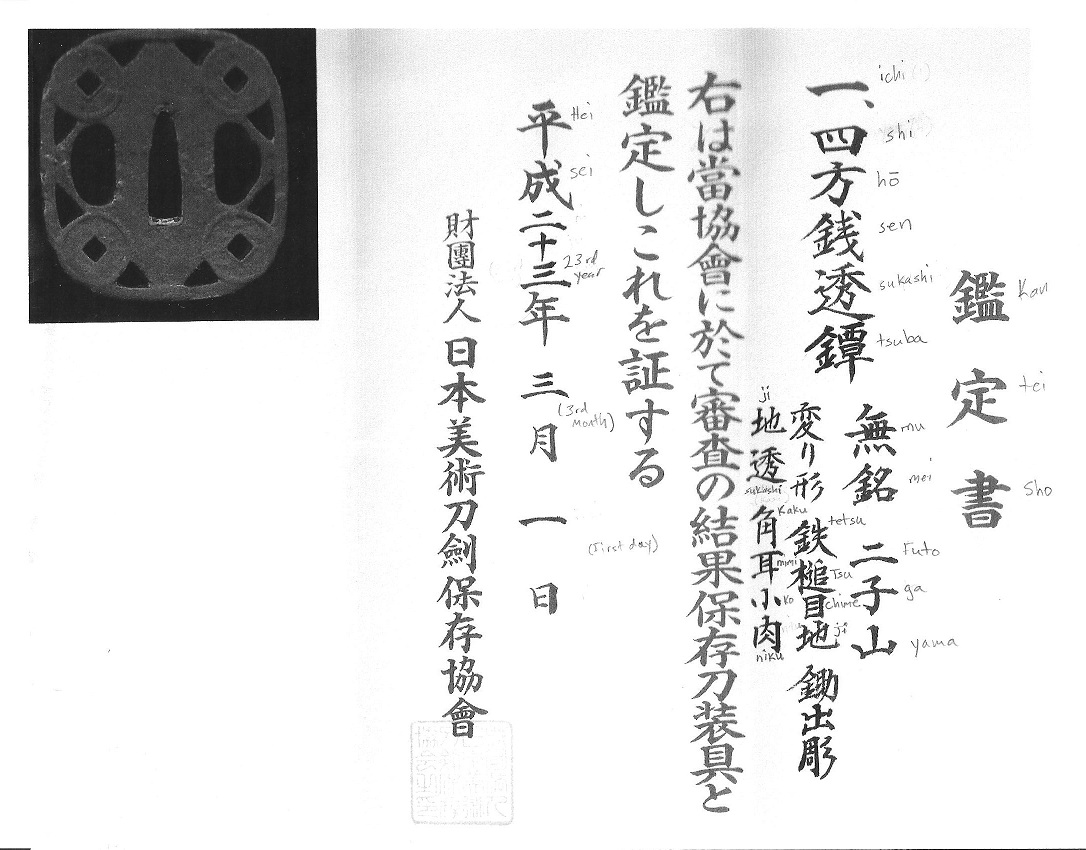 鑑定書
Kan
tei
sho
一、四方銭透鐔
ichi
shi
hō
sen
sukashi
tsuba
無銘 二子山
mu
mei
Futo
ga
yama
変り形 鉄槌目地 鋤出彫
tetsu
Tsu
chime
ji
地透 角耳小肉
ji
sukashi
Kaku
mimi
Ko
niku
右は當協會に於て審査の結果保存刀装具と
鑑定しこれを証する
平成二十三年 三月 一日
Hei
sei
23rd
year
(3rd
Month)
(First day)
財團法人 日本美術刀劍保存協會